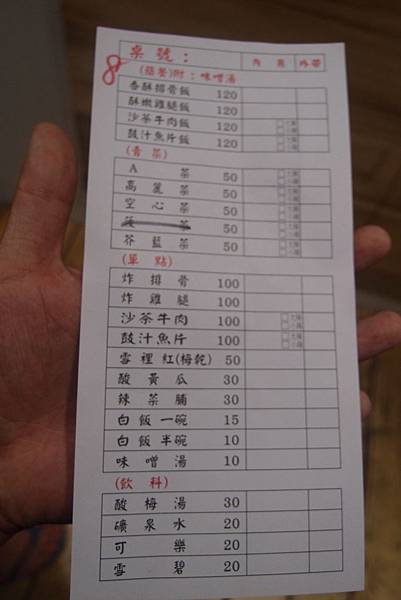 桌號： 內用 外帶
8
(簡餐)附：味噌湯
香酥排骨飯 120
酥嫩雞腿飯 120
沙茶牛肉飯 120
豉汁魚片飯 120
(青菜)
A菜 50
高麗菜 50
空心菜 50
菠菜 50
芥藍菜 50
(單點)
炸排骨 100
炸雞腿 100
沙茶牛肉 100
豉汁魚片 100
雪裡紅(梅乾) 50
酸黃瓜 30
辣菜脯 30
白飯一碗 15
白飯半碗 10
味噌湯 10
(飲料)
酸梅湯 30
礦泉水 20
可樂 20
雪碧 20